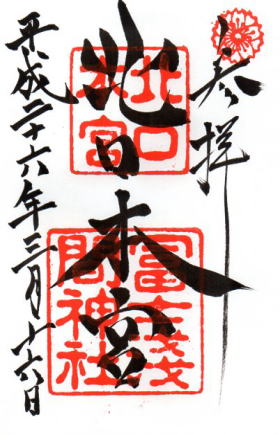 参拝
北口本宮
北口
本宮
冨士淺
間神社
平成二十六年三月十六日